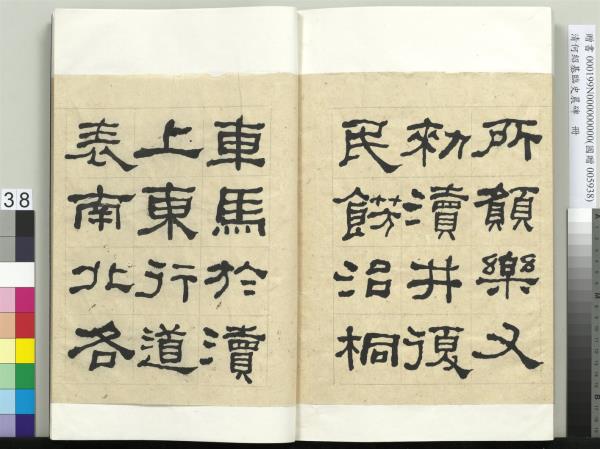 所願樂又
勑瀆井復
民餝治桐
車馬於瀆
上東行道
表南北各
贈書 000199N000000000(國贈 005938)
清何紹基臨史晨碑 冊
38